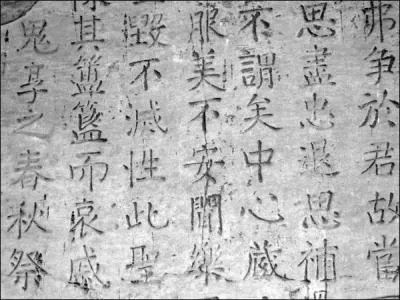 弗争於君故當
思盡忠退思補
不謂矣中心藏
服美不安聞樂
毀不滅性此聖
陳其簠簋而哀慼
鬼享之春秋祭